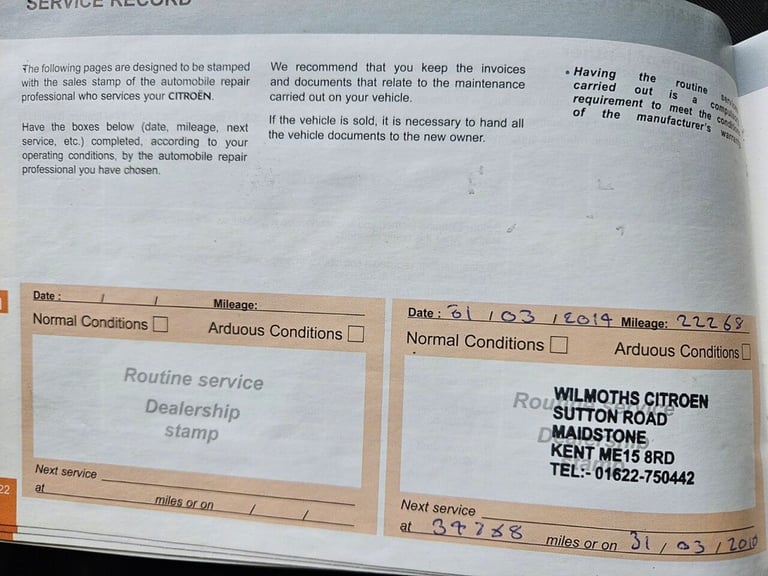 SERVICE RECORD
The following pages are designed to be stamped
with the sales stamp of the automobile repair
professional who services your CITROËN.
Have the boxes below (date, mileage, next
service, etc.) completed, according to your
operating conditions, by the automobile repair
professional you have chosen.
We recommend that you keep the invoices
and documents that relate to the maintenance
carried out on your vehicle.
If the vehicle is sold, it is necessary to hand all
the vehicle documents to the new owner.
• Having the routine
carried out is a
requirement to meet the
of the manufacturer's
Date : / / Mileage:
Normal Conditions Arduous Conditions
Routine service
Dealership
stamp
Next service
at miles or on / /
22
Date : / 03 / Mileage: 22268
Normal Conditions Arduous Conditions
Routine service
Dealership
stamp
WILMOTHS CITROEN
SUTTON ROAD
MAIDSTONE
KENT ME15 8RD
TEL:- 01622-750442
Next service
at miles or on 31 / 03 /